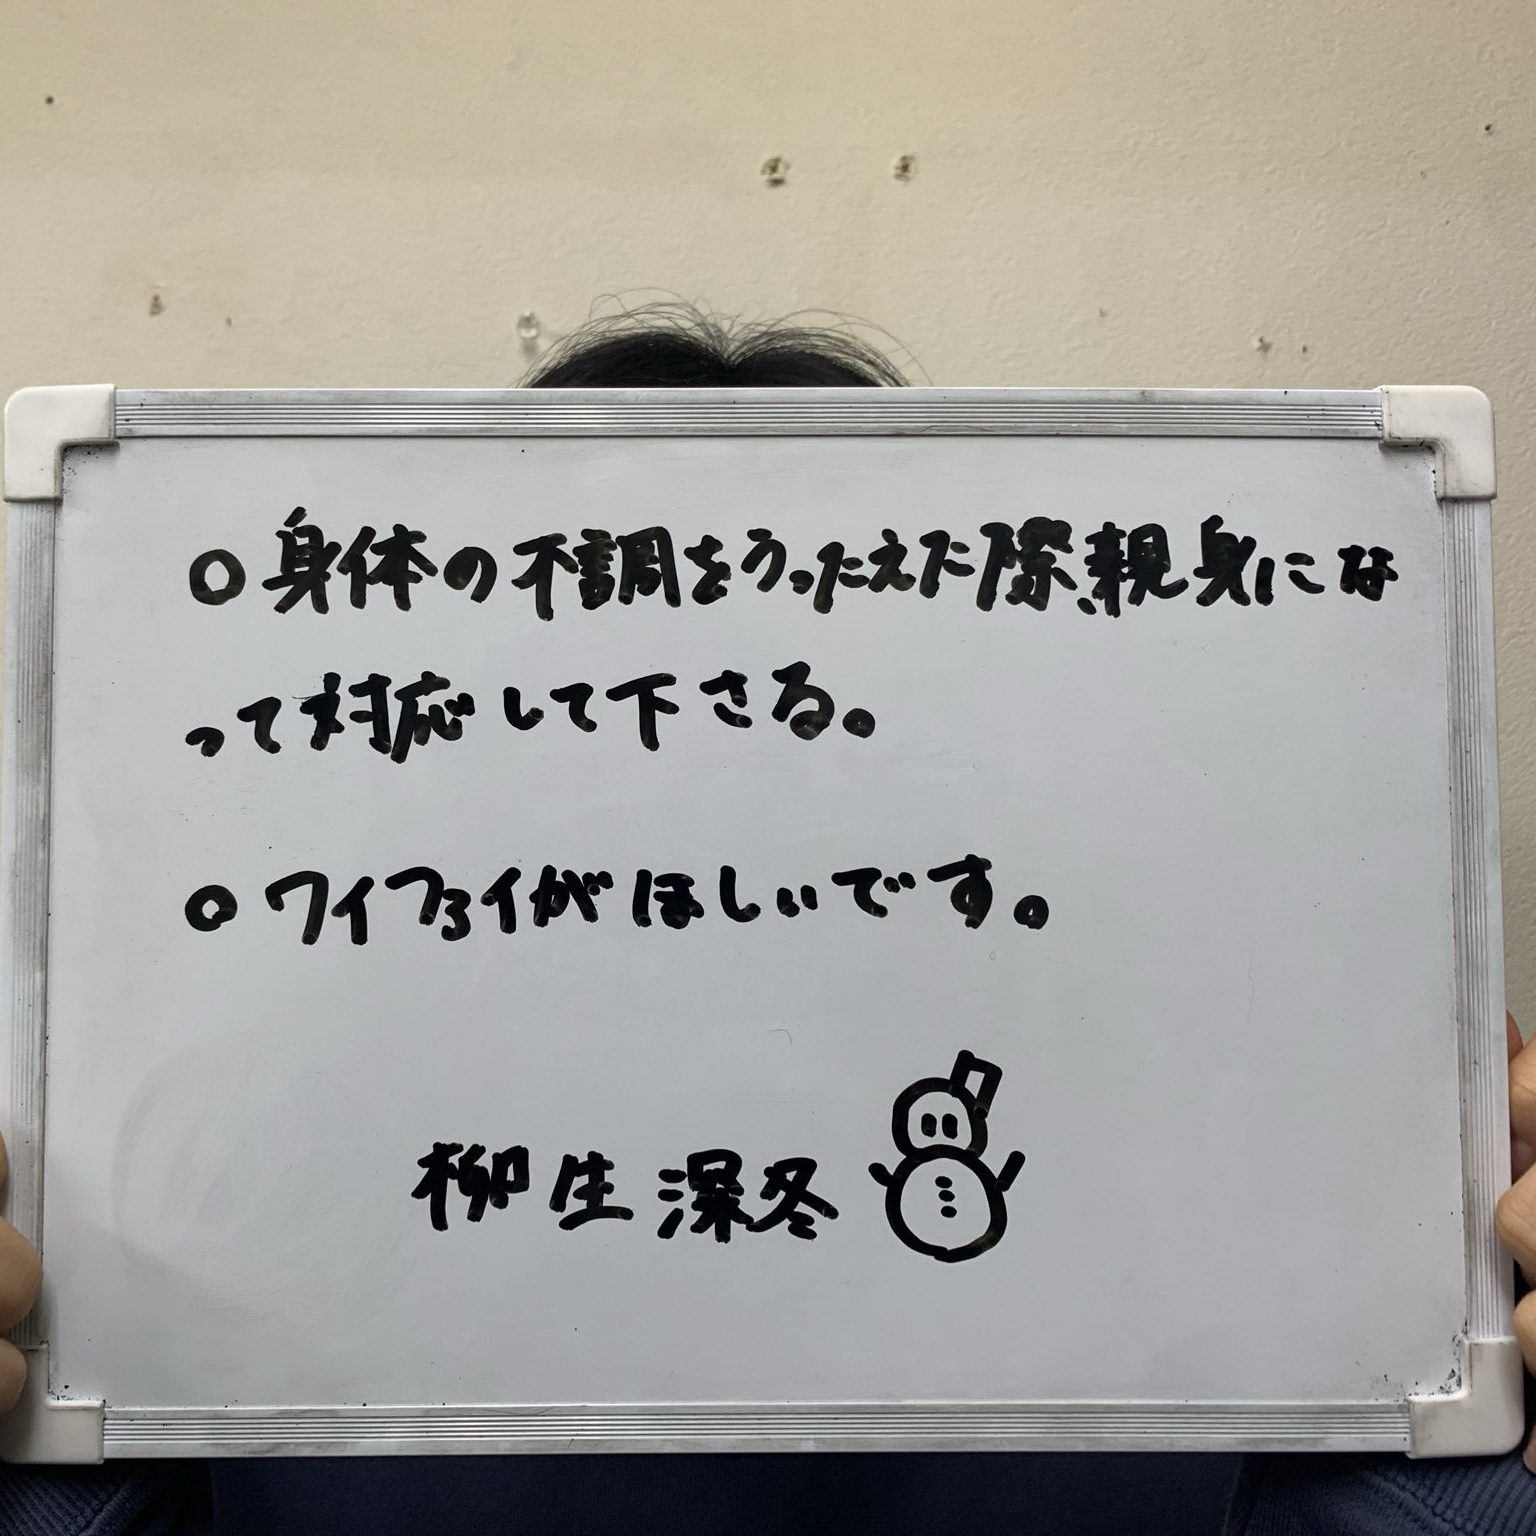 ○身体の不調をうったえた際、親身にな
って対応して下さる。
○ワイファイがほしいです。
柳生深冬